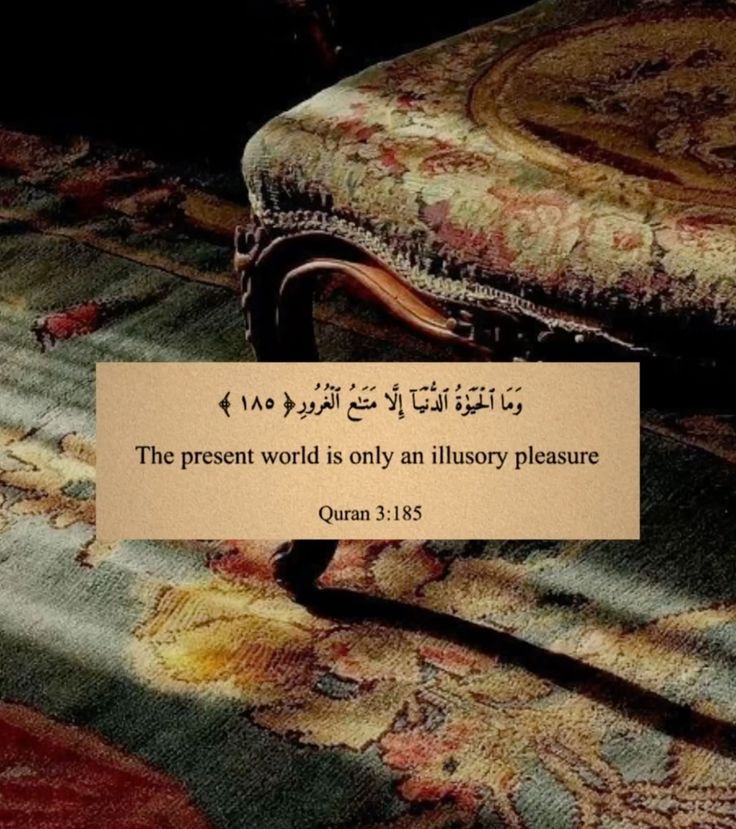 وَمَا ٱلْحَيَوٰةُ ٱلدُّنْيَآ إِلَّا مَتَـٰعُ ٱلْغُرُورِ ﴿ ١٨٥ ﴾
The present world is only an illusory pleasure
Quran 3:185